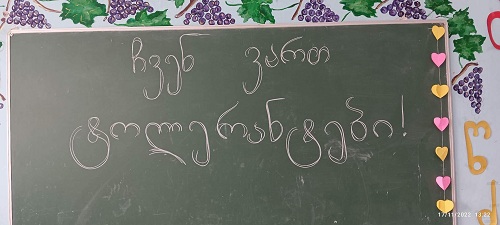 ჩვენ ვართ
ტოლერანტები!
ო
ძ
17/11/2022 13:22